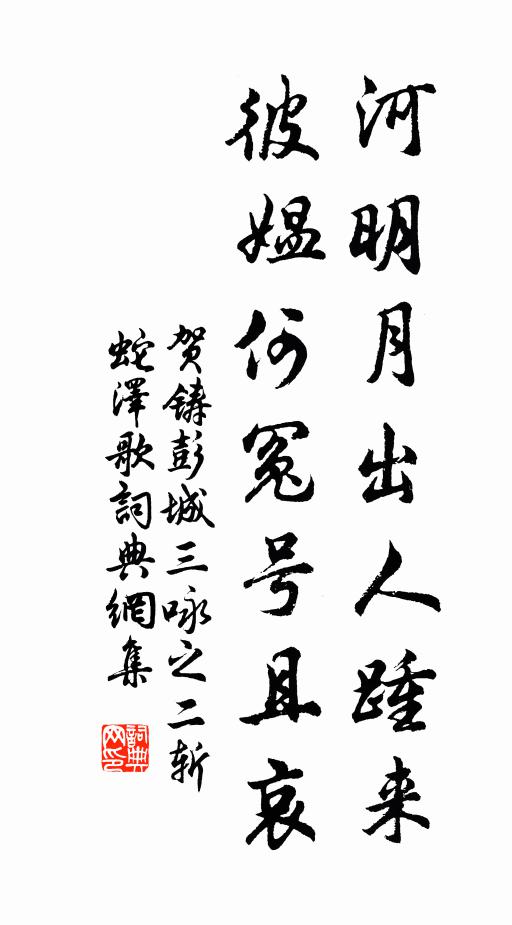 河明月出人踵来
彼媪何冤号且哀
贺铸彭城三咏之二斩
蛇澤歌詞典網集
詞典网印